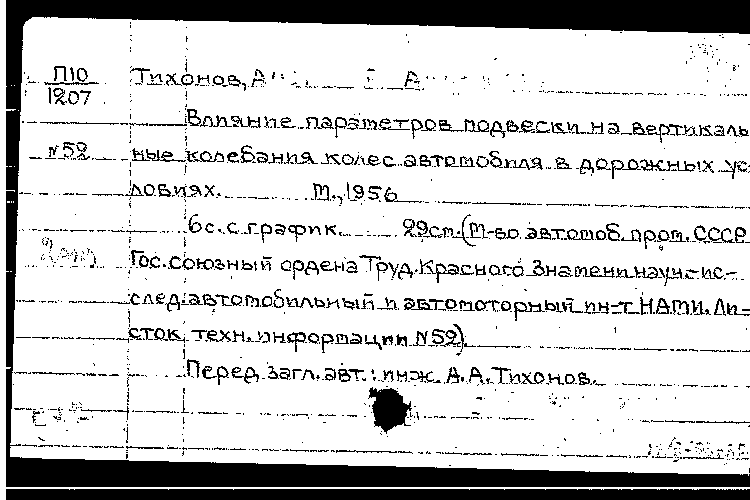 П10
1207
Тихонов, А
Влияние параметров подвески на вертикаль
№52
ные колебания колес автомобиля в дорожных ус
ловиях. М., 1956
6с. с график. 29см. (М-во автомоб. пром. СССР
Гос. союзный ордена Труд. Красного Знамени науч.-ис-
след. автомобильный и автомоторный ин-т НАМИ. Ли-
сток техн. информации №52).
Перед загл. авт.: инж. А.А. Тихонов.